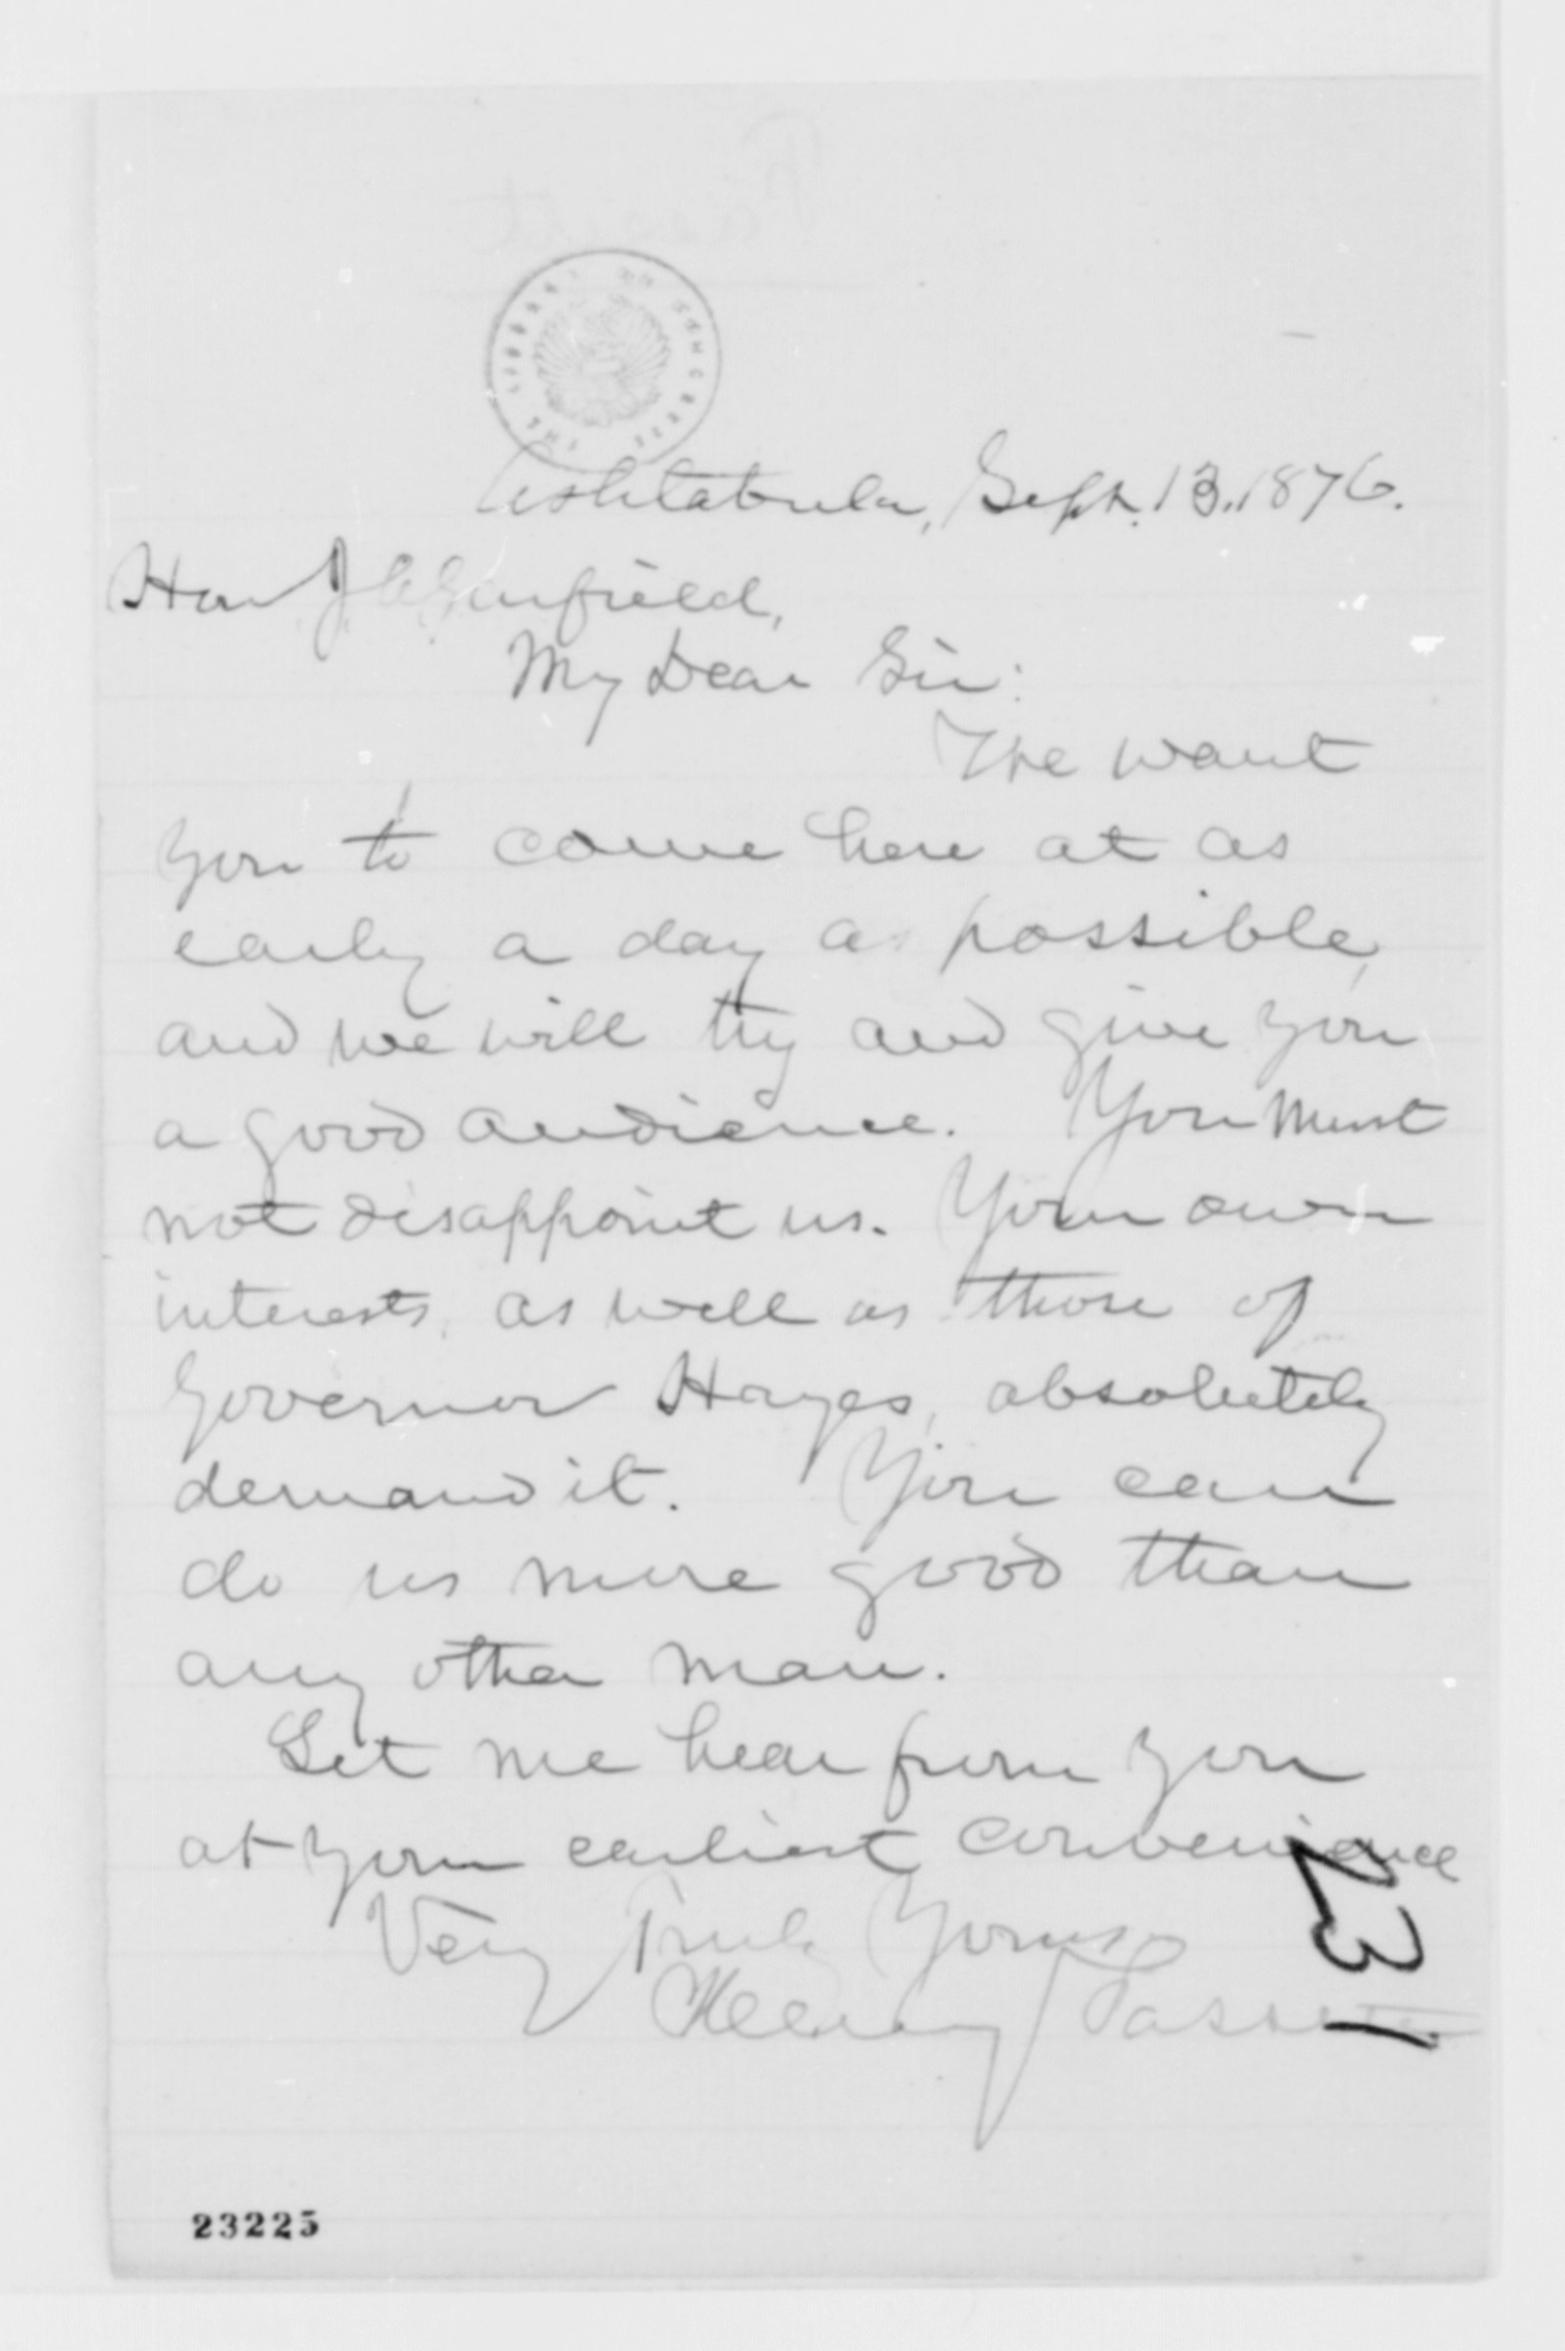 THE LIBRARY OF CONGRESS
Ashtabula, Sept. 13. 1876.
Hon J A Garfield,
My Dear Sir:
We want
you to come here at as
early a day as possible,
and we will try and give you
a good audience. You must
not disappoint us. Your own
interests, as well as those of
Governor Hayes, absolutely
demand it. You can
do us more good than
any other man.
Let me hear from you
at your earliest convenience
Very Truly Yours
Henry Fassett
231
23225